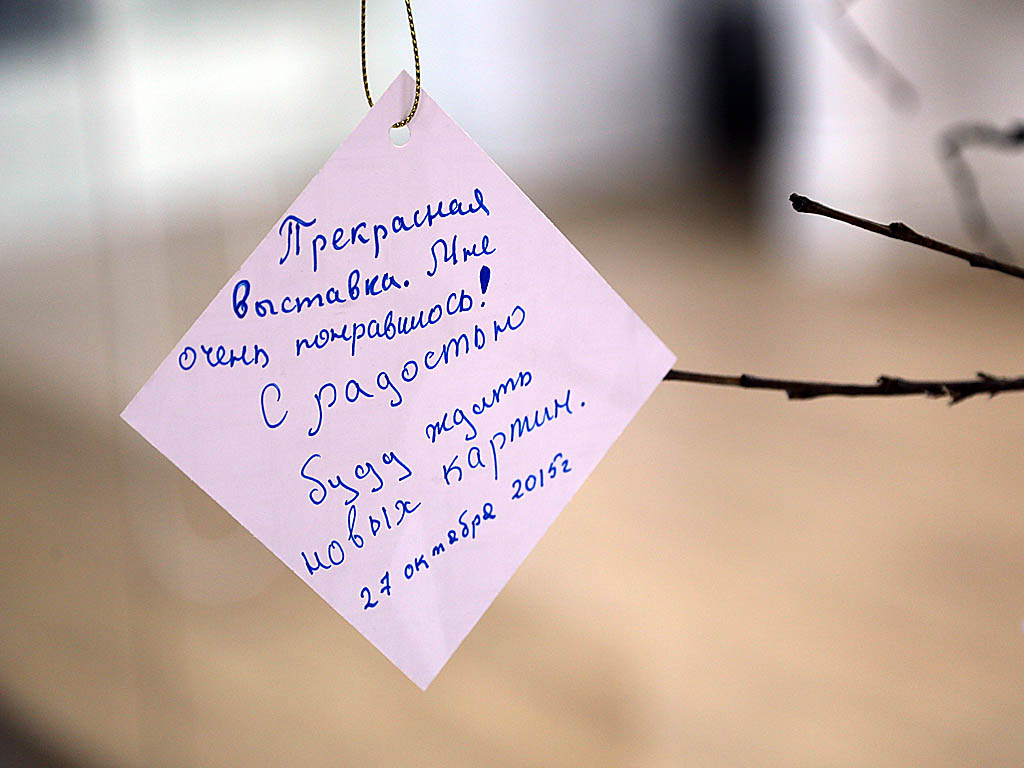 Прекрасная
выставка. Мне
очень понравилось!
С радостью
буду ждать
новых картин.
27 октября 2015г